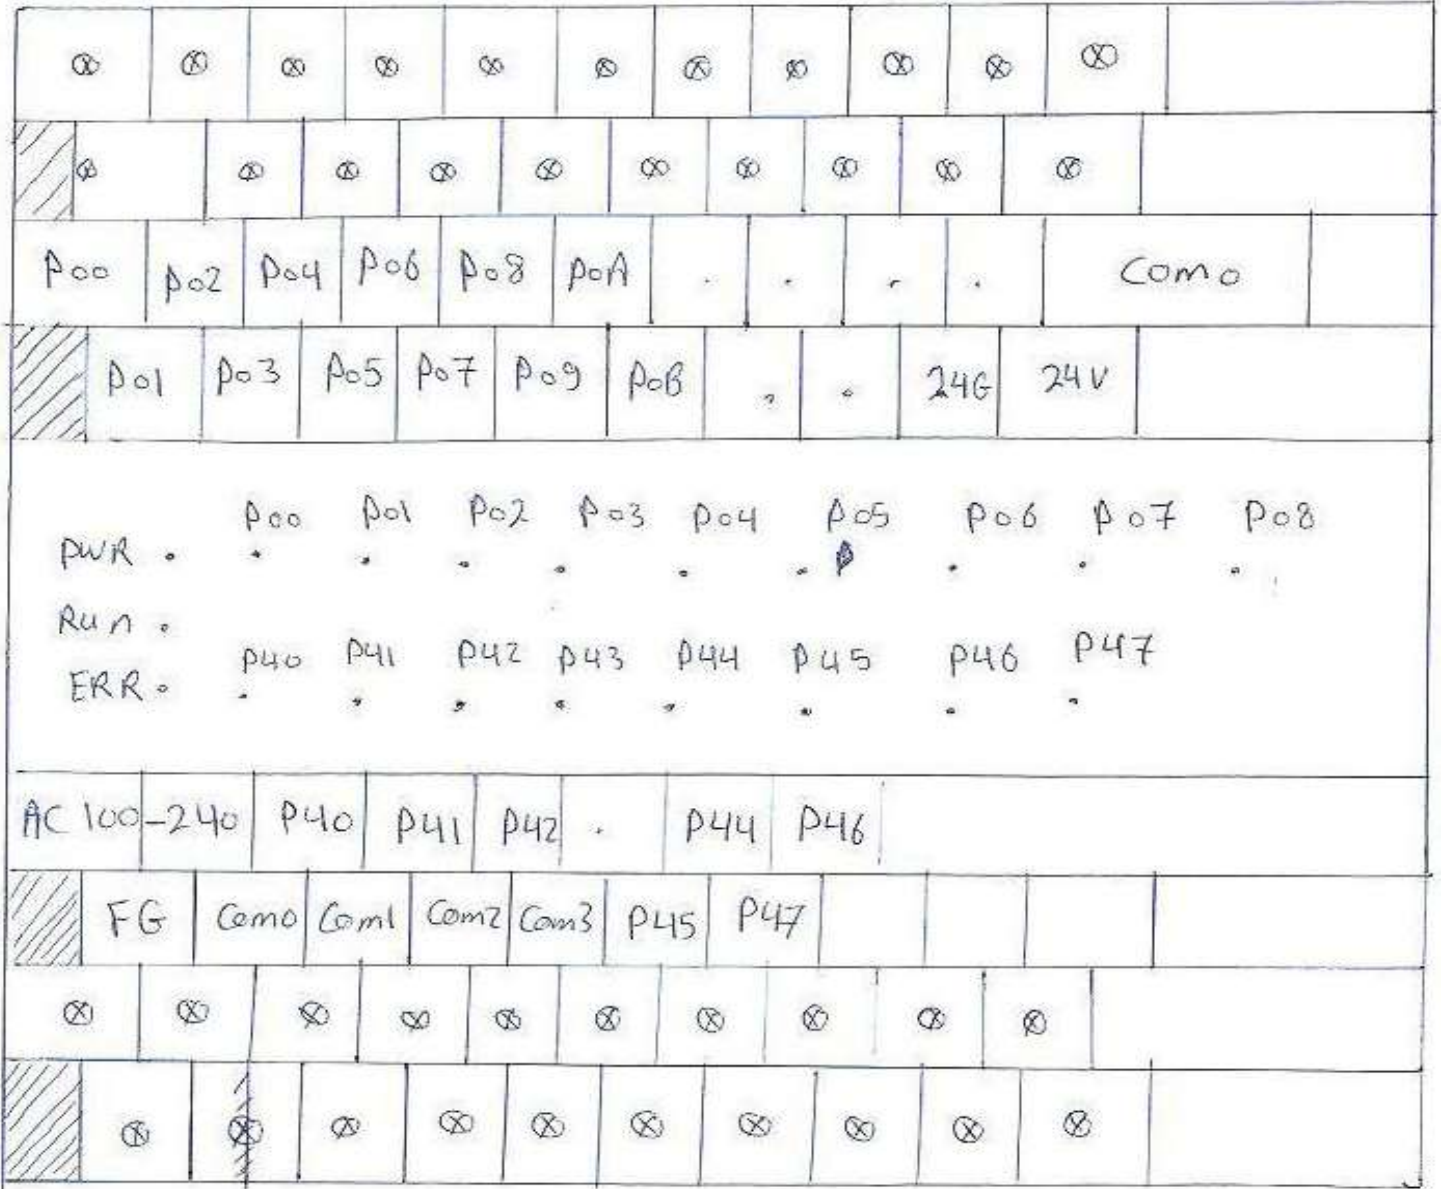 P00 P02 P04 P06 P08 P0A . . . . Com0
P01 P03 P05 P07 P09 P0B . . 24G 24V
P00 P01 P02 P03 P04 P05 P06 P07 P08
PWR .
Run .
P40 P41 P42 P43 P44 P45 P46 P47
ERR .
AC 100-240 P40 P41 P42 . P44 P46
FG Com0 Com1 Com2 Com3 P45 P47